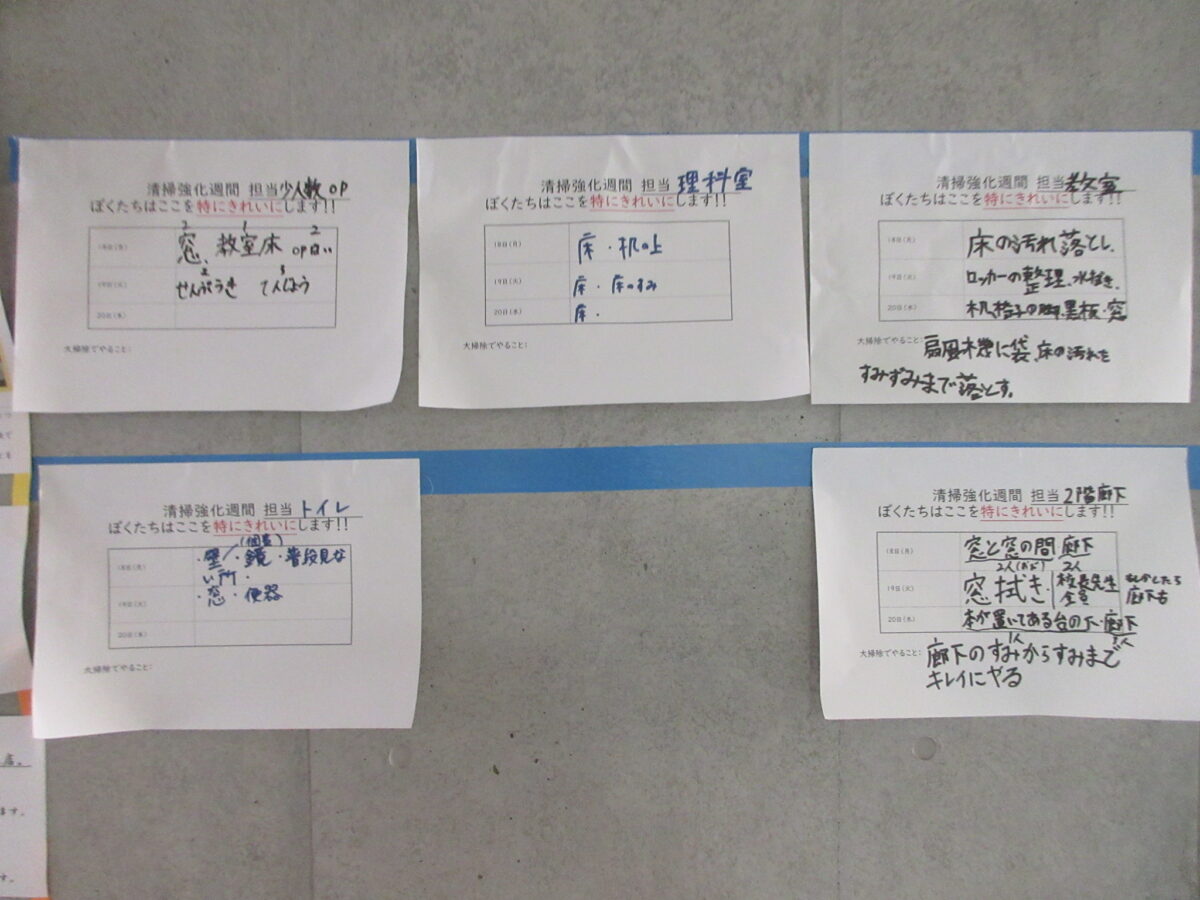 清掃強化週間 担当 少人数 OP
ぼくたちはここを特にきれいにします!!
18日(月) 窓、教室床 OP白い
2 1 2
19日(火) せんぷうき てんじょう
2 3
20日(水)
大掃除でやること:
清掃強化週間 担当 理科室
ぼくたちはここを特にきれいにします!!
18日(月) 床・机の上
19日(火) 床・床のすみ
20日(水) 床・
大掃除でやること:
清掃強化週間 担当 教室
ぼくたちはここを特にきれいにします!!
18日(月) 床の汚れ落とし、
19日(火) ロッカーの整理、水拭き、
20日(水) 机、椅子の脚、黒板・窓
大掃除でやること: 扇風機に袋、床の汚れを
すみずみまで落とす。
清掃強化週間 担当 トイレ
ぼくたちはここを特にきれいにします!!
(個室)
18日(月) ・壁・鏡・普段見な
い所・
19日(火) ・窓・便器
20日(水)
大掃除でやること:
清掃強化週間 担当 2階廊下
ぼくたちはここを特にきれいにします!!
18日(月) 窓と窓の間 廊下
2人 2人
19日(火) 窓拭き 校長先生 もしかしたら
全員 廊下も
20日(水) 本が置いてある台の下・廊下
1人 3人
大掃除でやること: 廊下のすみからすみまで
キレイにやる
ます。
す。